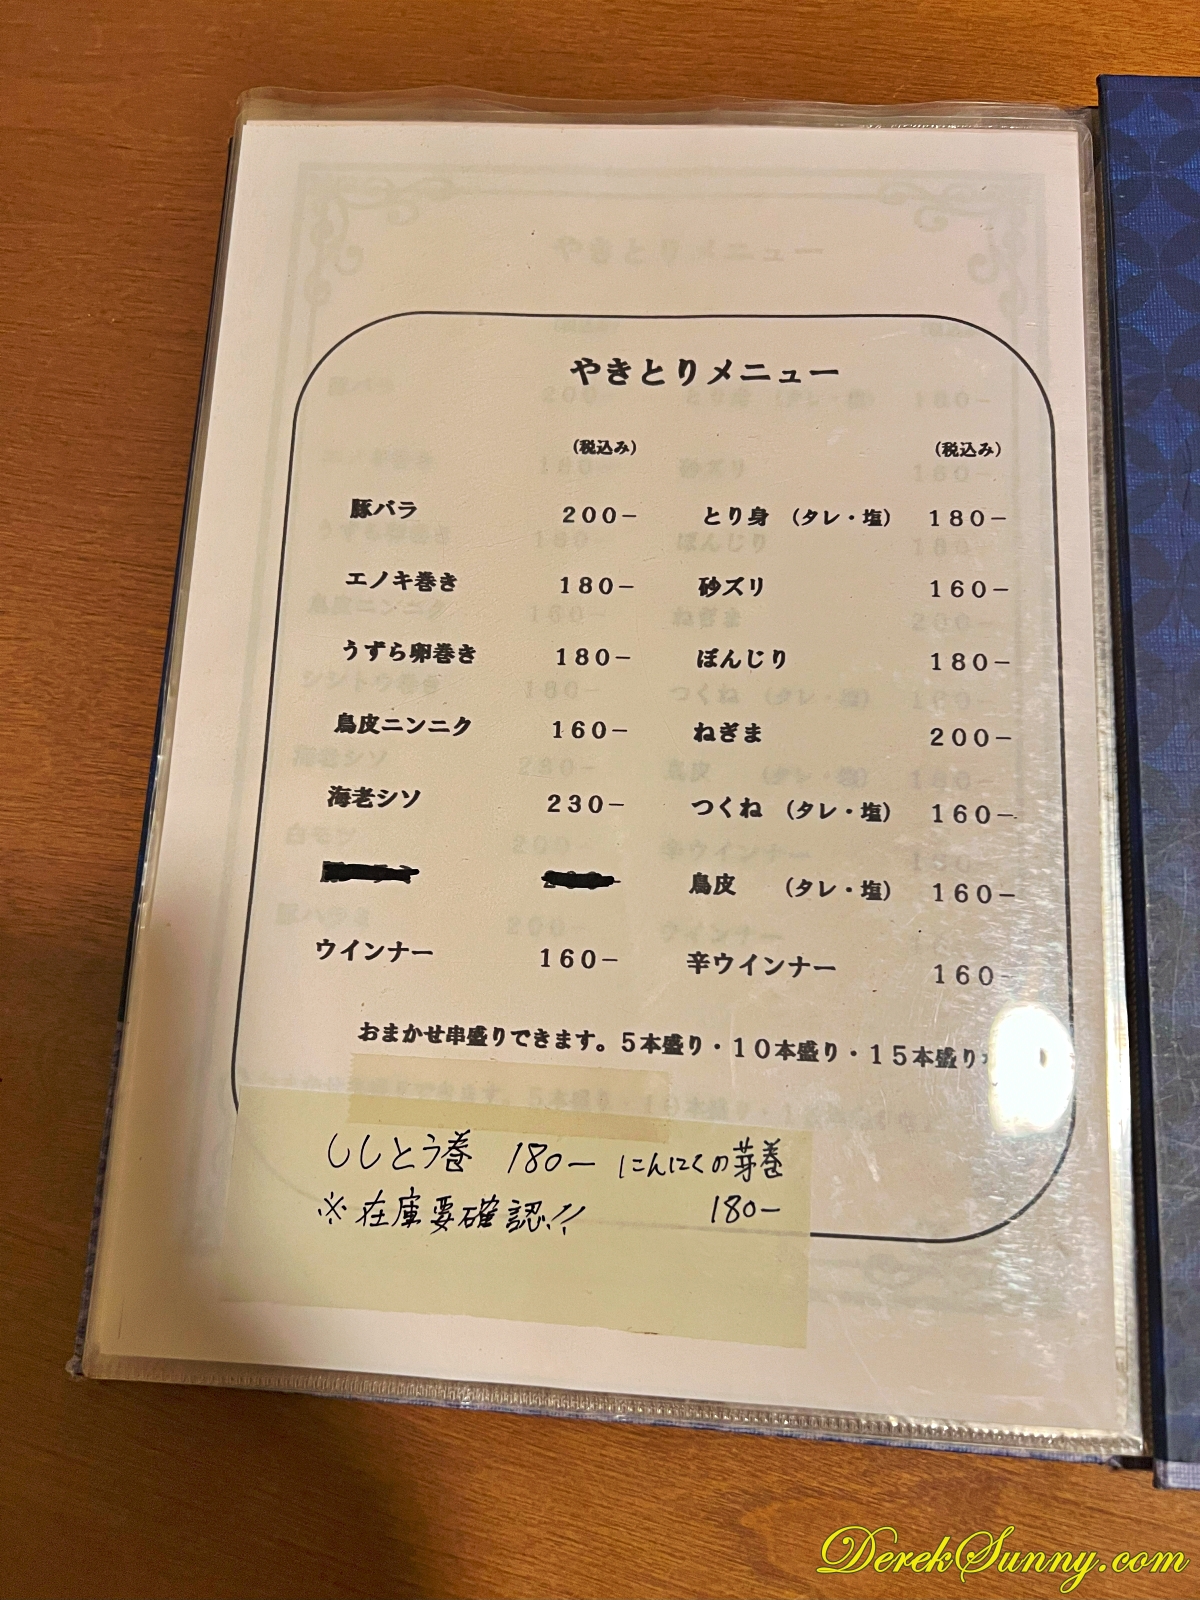 やきとりメニュー
(税込み) (税込み)
豚バラ 200− とり身 (タレ・塩) 180−
エノキ巻き 180− 砂ズリ 160−
うずら卵巻き 180− ぼんじり 180−
鳥皮ニンニク 160− ねぎま 200−
海老シソ 230− つくね (タレ・塩) 160−
鳥皮 (タレ・塩) 160−
ウインナー 160− 辛ウインナー 160−
おまかせ串盛りできます。5本盛り・10本盛り・15本盛り
ししとう巻 180− にんにくの芽巻
※在庫要確認!! 180−
DerekSunny.com